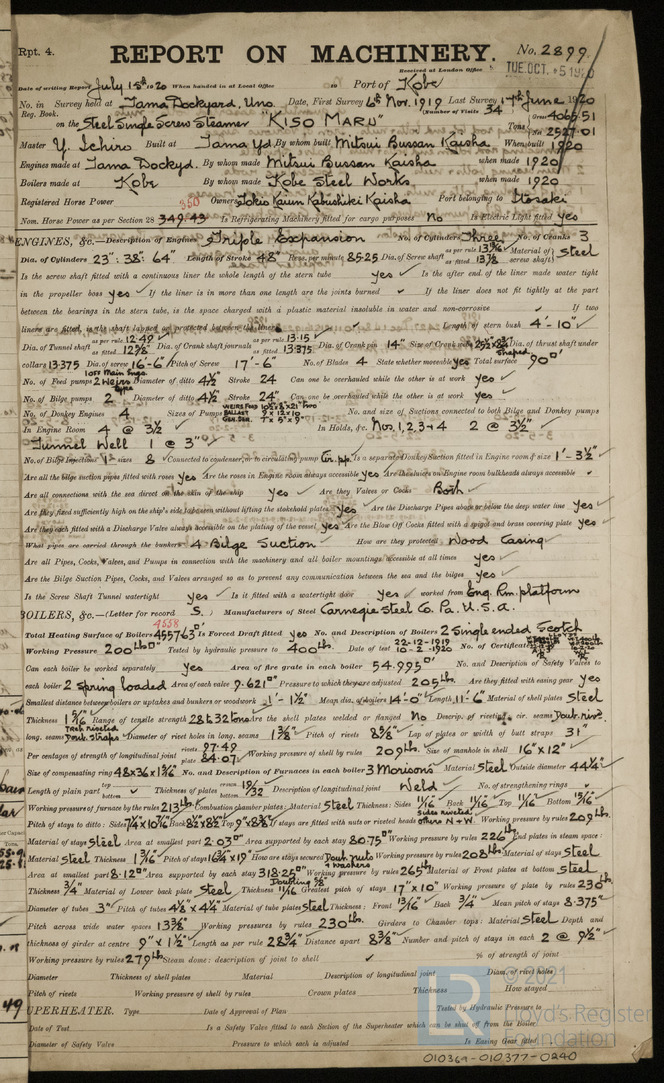 Rpt. 4. REPORT ON MACHINERY. No. 2899
Received at London Office TUE. OCT. 5 1920
Date of writing Report July 15th 1920 When handed in at Local Office 19 Port of Kobe
No. in Survey held at Tama Dockyard, Uno. Date, First Survey 6th Nov. 1919 Last Survey 17th June 1920
Reg. Book. (Number of Visits 34
on the Steel Single Screw Steamer "KISO MARU" Tons Gross 4066.51 Net 2527.01
Master Y. Ichiro Built at Tama Yd. By whom built Mitsui Bussan Kaisha When built 1920
Engines made at Tama Dockyd. By whom made Mitsui Bussan Kaisha when made 1920
Boilers made at Kobe By whom made Kobe Steel Works when made 1920
Registered Horse Power Owners Tokio Kabushiki Kaisha Port belonging to
Nom. Horse Power as per Section 28 349.43 350 Is Refrigerating Machinery fitted for cargo purposes No Is Electric Light fitted yes
ENGINES, &c.—Description of Engines Triple Expansion No. of Cylinders Three No. of Cranks 3
Dia. of Cylinders 23": 38": 64" Length of Stroke 48" Revs. per minute 85.25 Dia. of Screw shaft as per rule as fitted 13 7/8 Material of screw shaft Steel
Is the screw shaft fitted with a continuous liner the whole length of the stern tube yes Is the after end of the liner made water tight
in the propeller boss yes If the liner is in more than one length are the joints burned If the liner does not fit tightly at the part
between the bearings in the stern tube, is the space charged with a plastic material insoluble in water and non-corrosive If two
liners are fitted, is the shaft lapped or protected between the liners Length of stern bush 4'-10"
Dia. of Tunnel shaft as per rule 12.49 as fitted 12 5/8 Dia. of Crank shaft journals as per rule 13.15 as fitted 13.375 Dia. of Crank pin 14" Size of Crank webs Dia. of thrust shaft under
collars 13.375 Dia. of screw 16'-6" Pitch of Screw 17'-6" No. of Blades 4 State whether moveable yes Total surface 90□'
No. of Feed pumps 2 Weirs type Diameter of ditto 4 1/2 Stroke 24 Can one be overhauled while the other is at work yes
No. of Bilge pumps 2 Diameter of ditto 4 1/2 Stroke 24" Can one be overhauled while the other is at work yes
No. of Donkey Engines 4 Sizes of Pumps WEIRS FEED BALLAST 9 x 12 x 10 GEN. SER. 7 x 5 x 9 No. and size of Suctions connected to both Bilge and Donkey pumps
In Engine Room 4 @ 3 1/2 In Holds, &c. Nos. 1, 2, 3 + 4 2 @ 3 1/2"
Tunnel Well 1 @ 3"
No. of Bilge Injections 1 sizes 8 Connected to condenser, or to circulating pump Cir. pp. Is a separate Donkey Suction fitted in Engine room & size 1'-3 1/2"
Are all the bilge suction pipes fitted with roses yes Are the roses in Engine room always accessible yes Are the sluices on Engine room bulkheads always accessible
Are all connections with the sea direct on the skin of the ship yes Are they Valves or Cocks Both
Are they fixed sufficiently high on the ship's side to be seen without lifting the stokehold plates yes Are the Discharge Pipes above or below the deep water line yes
Are they each fitted with a Discharge Valve always accessible on the plating of the vessel yes Are the Blow Off Cocks fitted with a spigot and brass covering plate yes
What pipes are carried through the bunkers 4 Bilge Suction How are they protected Wood Casing
Are all Pipes, Cocks, Valves, and Pumps in connection with the machinery and all boiler mountings accessible at all times yes
Are the Bilge Suction Pipes, Cocks, and Valves arranged so as to prevent any communication between the sea and the bilges yes
Is the Screw Shaft Tunnel watertight yes Is it fitted with a watertight door yes worked from Eng. Rm. platform
BOILERS, &c.—(Letter for record S.) Manufacturers of Steel Carnegie Steel Co. Pa. U.S.A.
Total Heating Surface of Boilers 4557.63□' 4558 Is Forced Draft fitted yes No. and Description of Boilers 2 Single ended Scotch
Working Pressure 200 lbs□" Tested by hydraulic pressure to 400 lbs. Date of test 22-12-1919 10-2-1920 No. of Certificate
Can each boiler be worked separately yes Area of fire grate in each boiler 54.995□' No. and Description of Safety Valves to
each boiler 2 Spring loaded Area of each valve 9.621□" Pressure to which they are adjusted 205 lbs. Are they fitted with easing gear yes
Smallest distance between boilers or uptakes and bunkers or woodwork 1'-1 1/2" Mean dia. of boilers 14'-0" Length 11'-6" Material of shell plates Steel
Thickness 1 5/16 Range of tensile strength 28 to 32 tons Are the shell plates welded or flanged No Descrip. of riveting: cir. seams Doub. riv.
long. seams Treb. riveted Doub. straps Diameter of rivet holes in long. seams 1 3/8" Pitch of rivets 8 5/8" Lap of plates or width of butt straps 31"
Per centages of strength of longitudinal joint rivets 97.49 plate 84.07 Working pressure of shell by rules 209 lbs. Size of manhole in shell 16" x 12"
Size of compensating ring 48 x 36 x 1 5/16" No. and Description of Furnaces in each boiler 3 Morisons Material Steel Outside diameter 44 1/4"
Length of plain part top bottom Thickness of plates crown bottom 19/32 Description of longitudinal joint Weld No. of strengthening rings
Working pressure of furnace by the rules 213 lbs. Combustion chamber plates: Material Steel Thickness: Sides 11/16 Back 11/16 Top 11/16 Bottom 15/16
Pitch of stays to ditto: Sides 7 1/4 x 10 7/16 Back 8 1/2 x 8 1/2 Top 9" x 8 3/8" If stays are fitted with nuts or riveted heads sides riveted others N + W Working pressure by rules 209 lbs.
Material of stays Steel Area at smallest part 2.03□" Area supported by each stay 80.75□" Working pressure by rules 226 lbs. End plates in steam space:
Material Steel Thickness 1 3/16" Pitch of stays 16 3/4 x 19" How are stays secured Doub. nuts + washers Working pressure by rules 208 lbs. Material of stays Steel
Area at smallest part 8.12□" Area supported by each stay 318.25□" Working pressure by rules 265 lbs. Material of Front plates at bottom Steel
Thickness 3/4" Material of Lower back plate Steel Thickness 11/16 Doubling 5/8" Greatest pitch of stays 17" x 10" Working pressure of plate by rules 230 lbs.
Diameter of tubes 3" Pitch of tubes 4 1/8" x 4 1/4" Material of tube plates Steel Thickness: Front 13/16" Back 3/4" Mean pitch of stays 8.375"
Pitch across wide water spaces 13 3/8" Working pressures by rules 230 lbs. Girders to Chamber tops: Material Steel Depth and
thickness of girder at centre 9" x 1 1/2" Length as per rule 28 3/4" Distance apart 8 3/8" Number and pitch of stays in each 2 @ 9 1/2"
Working pressure by rules 279 lbs. Steam dome: description of joint to shell % of strength of joint
Diameter Thickness of shell plates Material Description of longitudinal joint Diam. of rivet holes
Pitch of rivets Working pressure of shell by rules Crown plates Thickness How stayed
SUPERHEATER. Type Date of Approval of Plan Tested by Hydraulic Pressure to
Date of Test Is a Safety Valve fitted to each Section of the Superheater which can be shut off from the Boiler
Diameter of Safety Valve Pressure to which each is adjusted Is Easing Gear fitted
© 2021
Lloyd's Register
Foundation
010369-010377-0240